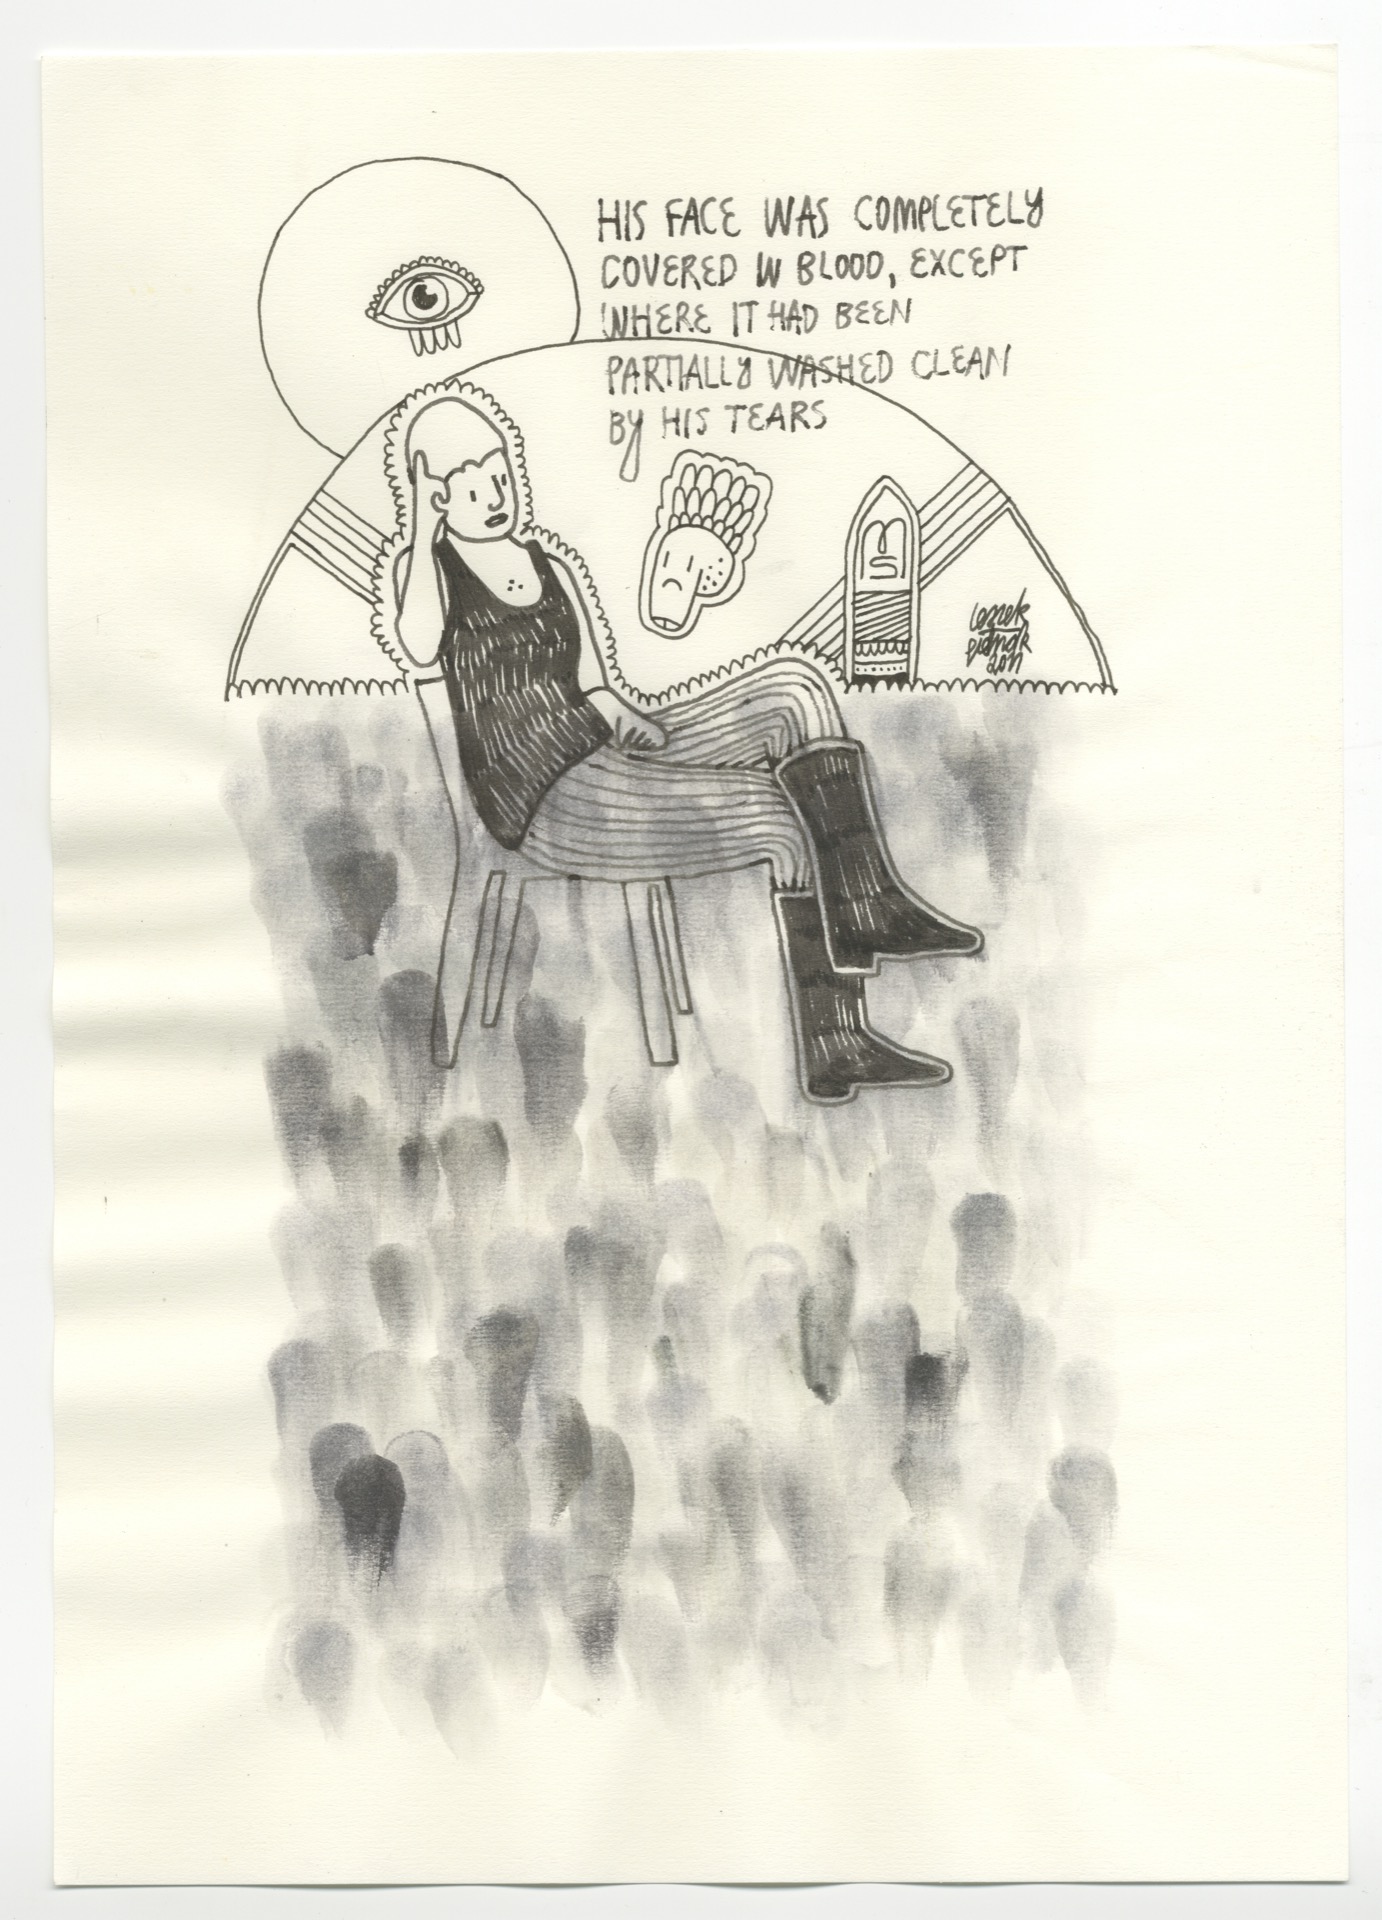 HIS FACE WAS COMPLETELY
COVERED IN BLOOD, EXCEPT
WHERE IT HAD BEEN
PARTIALLY WASHED CLEAN
BY HIS TEARS
MS
2011